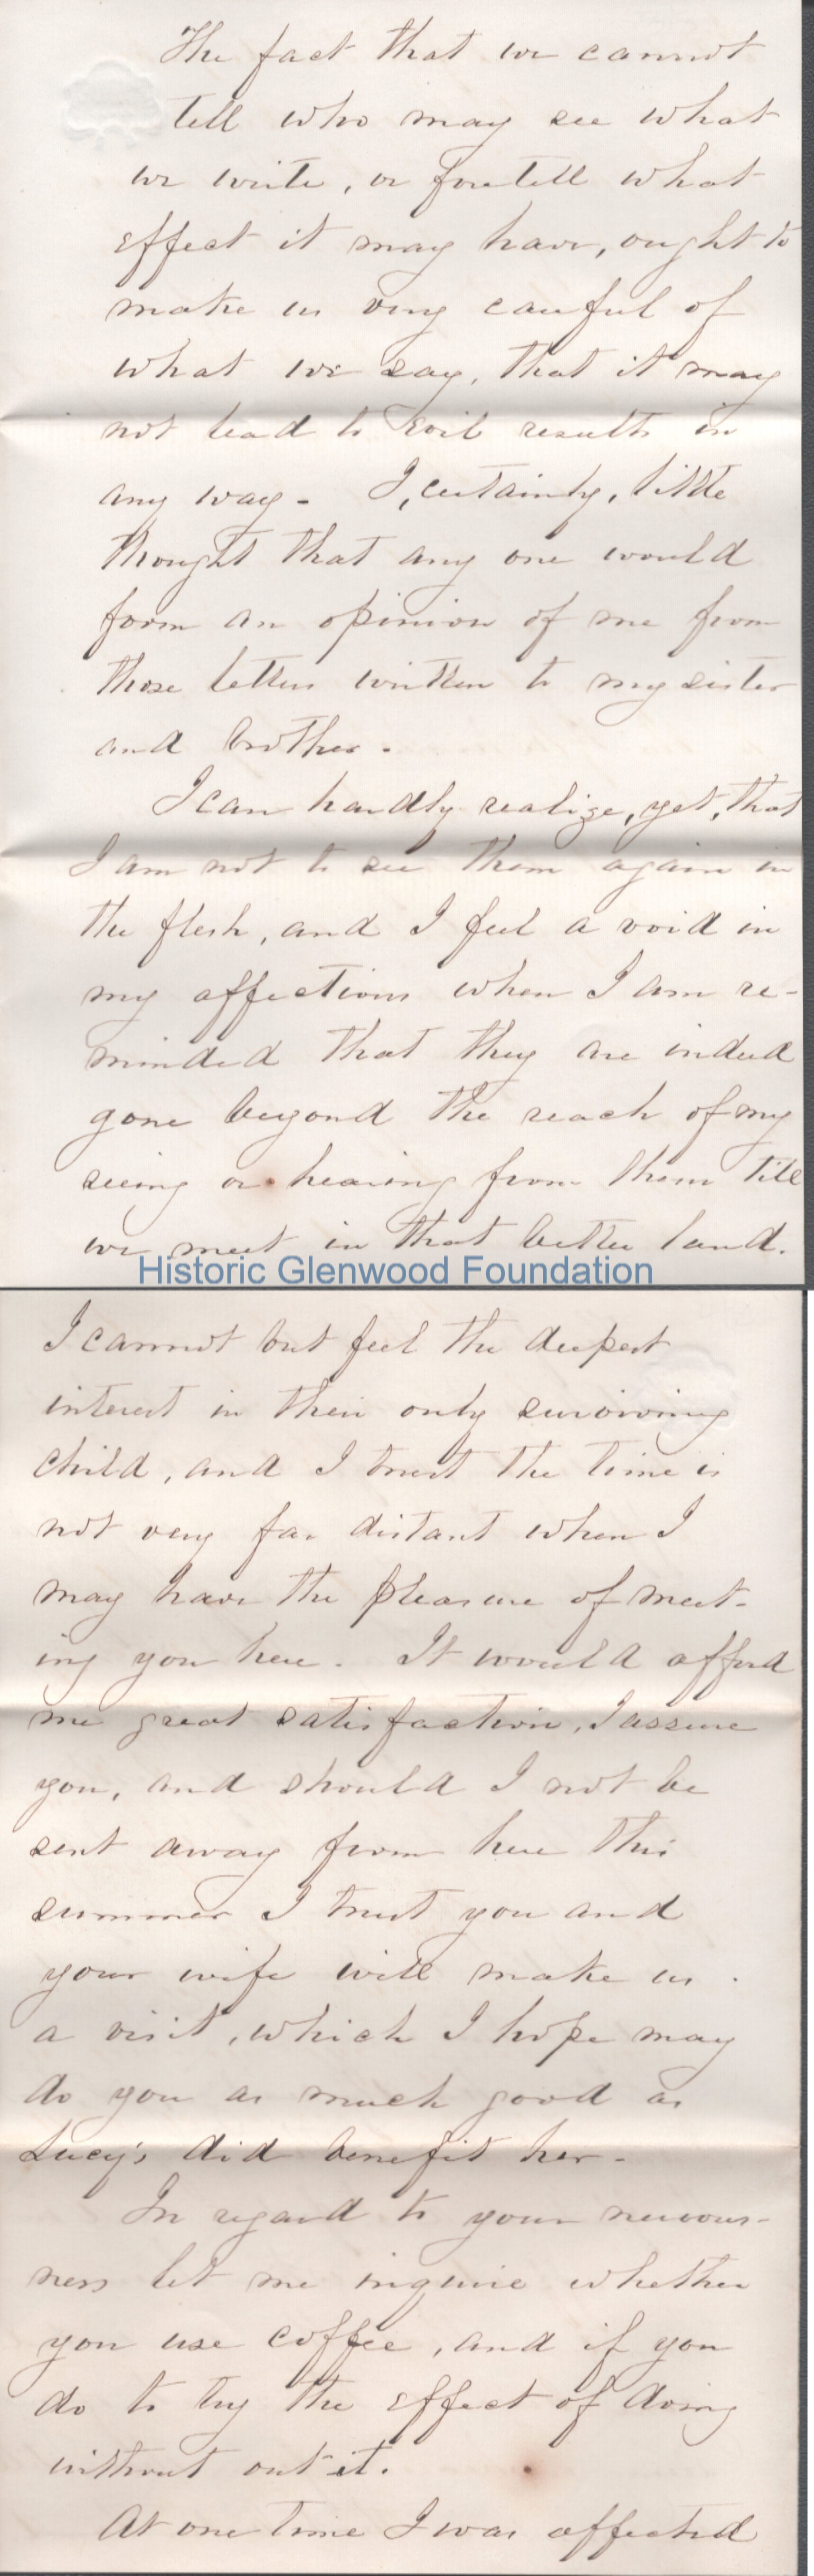 The fact that we cannot
tell who may see what
we write, or foretell what
effect it may have, ought to
make us very careful of
what we say, that it may
not lead to evil results in
any way - I, certainly, little
thought that any one would
form an opinion of me from
those letters written to my sister
and brother.
I can hardly realize, yet, that
I am not to see them again in
the flesh, and I feel a void in
my affections when I am re-
minded that they are indeed
gone beyond the reach of my
seeing or hearing from them till
we meet in that better land.
Historic Glenwood Foundation
I cannot but feel the deepest
interest in their only surviving
child, and I trust the time is
not very far distant when I
may have the pleasure of meet-
ing you here. It would afford
me great satisfaction, I assure
you, and should I not be
sent away from here this
summer I trust you and
your wife will make us
a visit, which I hope may
do you as much good as
Lucy's did benefit her -
In regard to your nervous-
ness let me inquire whether
you use coffee, and if you
do to try the effect of doing
without out it.
At one time I was affected